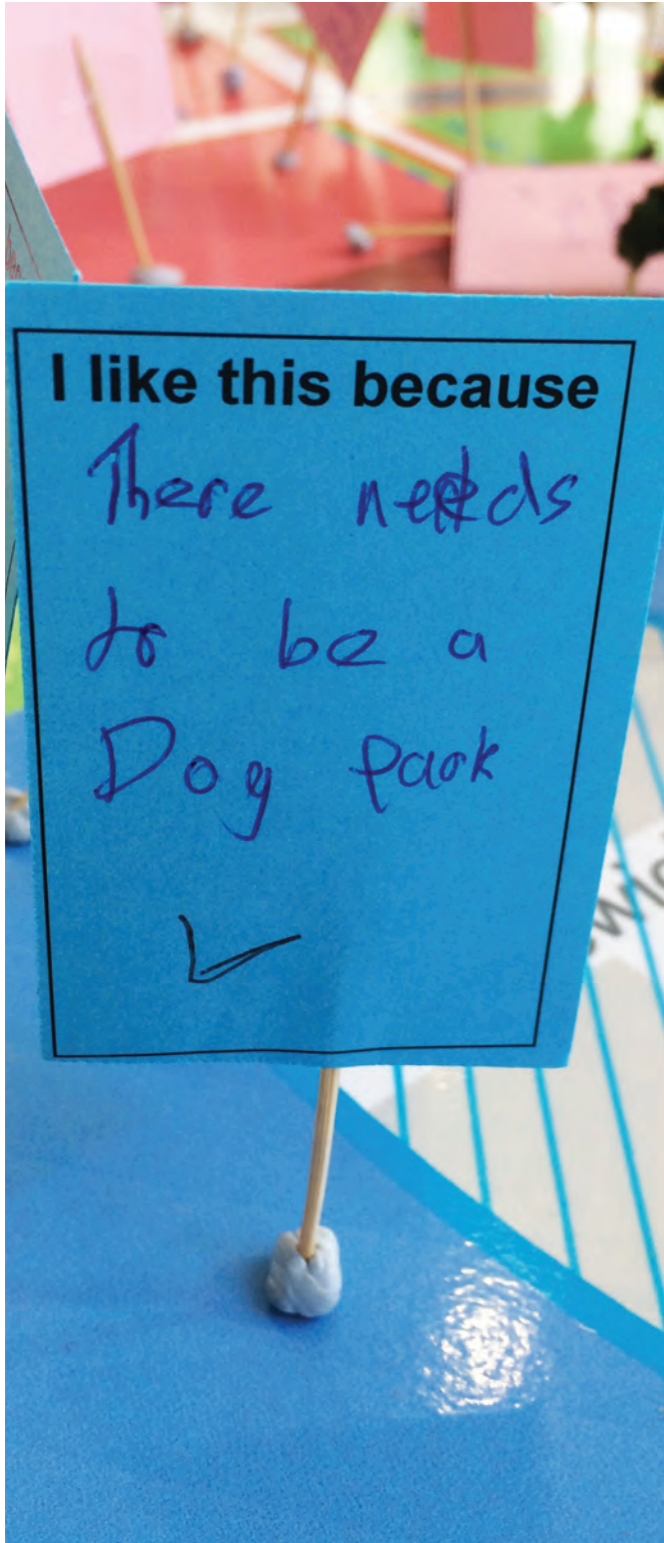 I like this because
There needs
to be a
Dog park